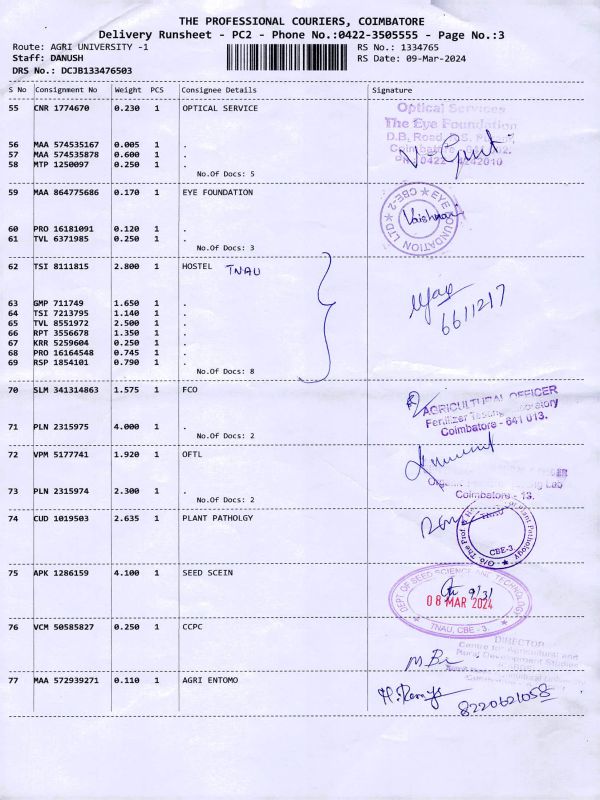 THE PROFESSIONAL COURIERS, COIMBATORE
Delivery Runsheet - PC2 - Phone No.:0422-3505555 - Page No.:3
Route: AGRI UNIVERSITY -1 RS No.: 1334765
Staff: DANUSH RS Date: 09-Mar-2024
DRS No.: DCJB133476503
S No Consignment No Weight PCS Consignee Details Signature
55 CNR 1774670 0.230 1 OPTICAL SERVICE
Optical Services
The Eye Foundation
D.B. Road, R.S.
56 MAA 574535167 0.005 1 .
57 MAA 574535878 0.600 1 .
58 MTP 1250097 0.250 1 .
No.Of Docs: 5
59 MAA 864775686 0.170 1 EYE FOUNDATION
EYE FOUNDATION LTD ★ CBE-2 ★
Vaishnavi
60 PRO 16181091 0.120 1 .
61 TVL 6371985 0.250 1 .
No.Of Docs: 3
62 TSI 8111815 2.800 1 HOSTEL TNAU
63 GMP 711749 1.650 1 .
64 TSI 7213795 1.140 1 .
65 TVL 8551972 2.500 1 .
66 RPT 3556678 1.350 1 .
67 KRR 5259604 0.250 1 .
68 PRO 16164548 0.745 1 .
69 RSP 1854101 0.790 1 .
No.Of Docs: 8
6611217
70 SLM 341314863 1.575 1 FCO
AGRICULTURAL OFFICER
Fertilizer Testing Laboratory
Coimbatore - 641 013.
71 PLN 2315975 4.000 1 .
No.Of Docs: 2
72 VPM 5177741 1.920 1 OFTL
73 PLN 2315974 2.300 1 .
No.Of Docs: 2
Lab
Coimbatore - 13.
74 CUD 1019503 2.635 1 PLANT PATHOLGY
O/o. The Prof & Plant Pathology
TNAU
CBE-3.
75 APK 1286159 4.100 1 SEED SCEIN
DEPT OF SEED SCIENCE AND TECHNOLOGY
08 MAR 2024
★ TNAU, CBE - 3. ★
76 VCM 50585827 0.250 1 CCPC
DIRECTOR
Centre for Agricultural and
Rural Development Studies
77 MAA 572939271 0.110 1 AGRI ENTOMO
8220621058